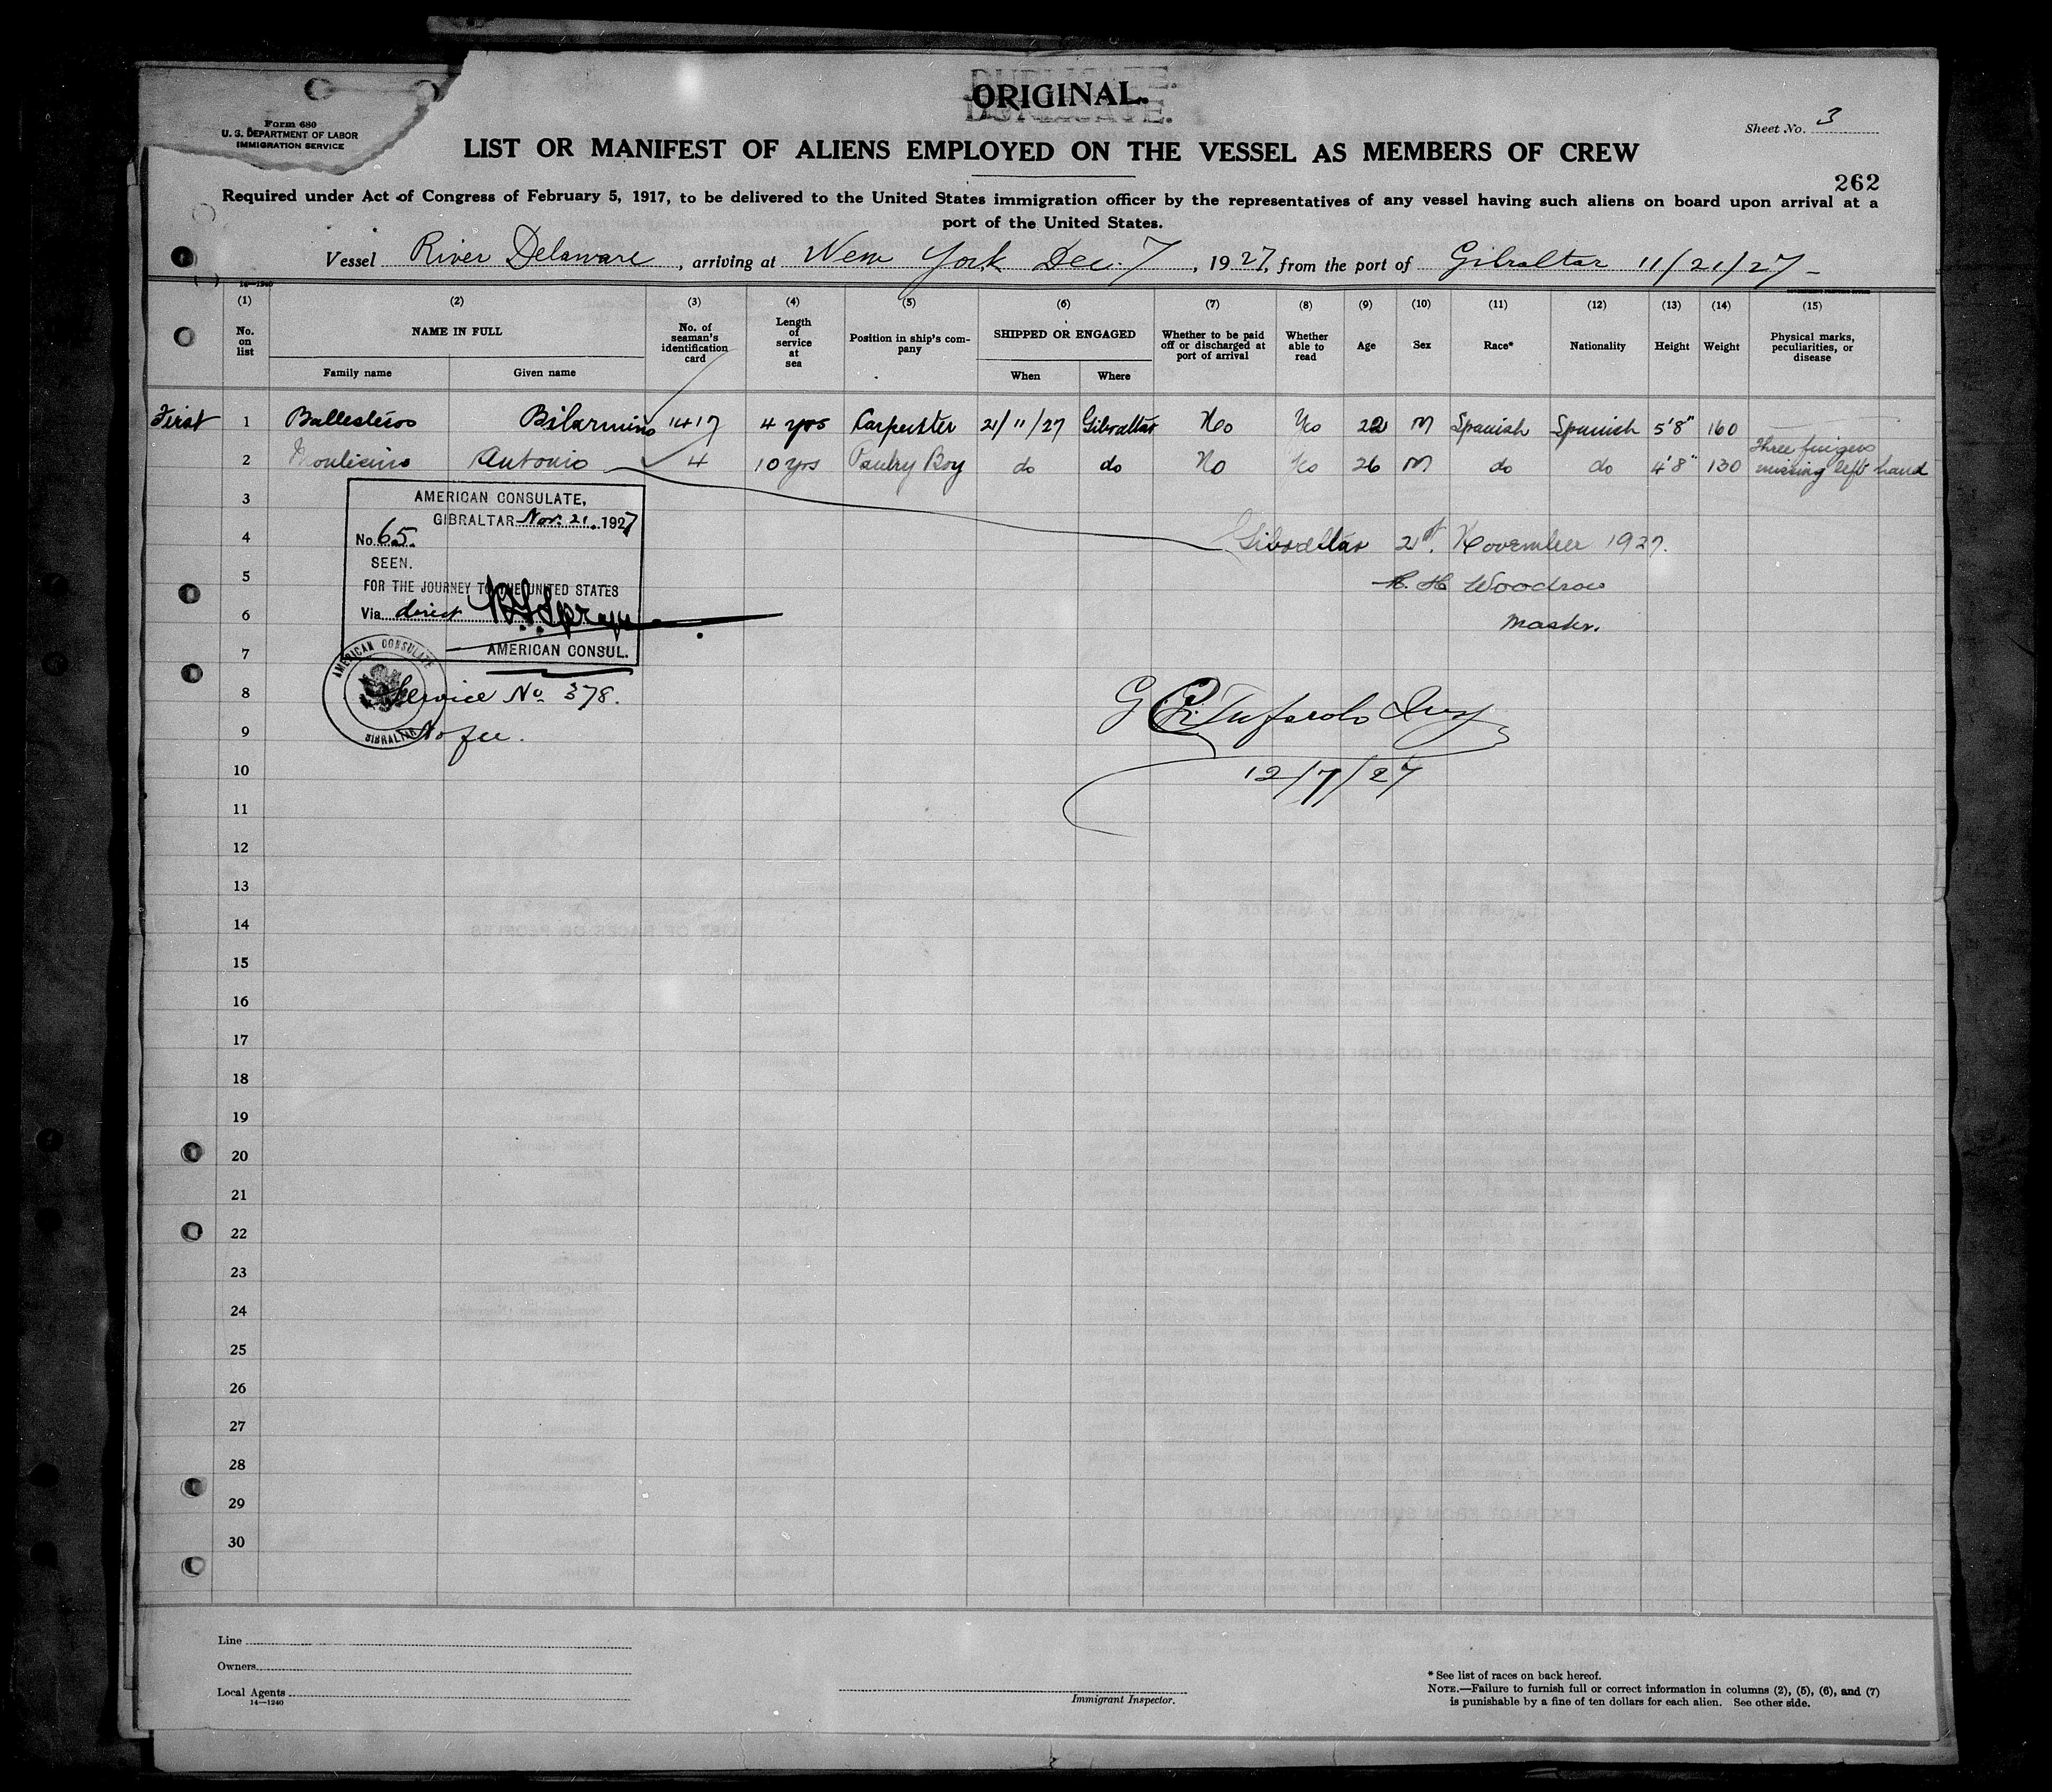 DUPLICATE.
ORIGINAL.
DUPLICATE.
Form 680
U. S. DEPARTMENT OF LABOR
IMMIGRATION SERVICE
Sheet No. 3
LIST OR MANIFEST OF ALIENS EMPLOYED ON THE VESSEL AS MEMBERS OF CREW
262
Required under Act of Congress of February 5, 1917, to be delivered to the United States immigration officer by the representatives of any vessel having such aliens on board upon arrival at a
port of the United States.
Vessel River Delaware, arriving at New York Dec. 7, 1927, from the port of Gibraltar 11/21/27
14—1240
(1) (2) (3) (4) (5) (6) (7) (8) (9) (10) (11) (12) (13) (14) (15)
No. on list
NAME IN FULL
Family name
Given name
No. of seaman's identification card
Length of service at sea
Position in ship's company
SHIPPED OR ENGAGED
When
Where
Whether to be paid off or discharged at port of arrival
Whether able to read
Age
Sex
Race*
Nationality
Height
Weight
Physical marks, peculiarities, or disease
First 1 Ballesteros Bilarmino 1417 4 yrs Carpenter 21/11/27 Gibraltar No Yes 22 M Spanish Spanish 5'8" 160
2 Antonio 4 10 yrs Pantry Boy do do No Yes 26 M do do 4'8" 130 Three fingers missing left hand
3
AMERICAN CONSULATE,
GIBRALTAR Nov. 21. 1927
No. 65.
4 Gibraltar 21st. November 1927.
SEEN.
5 H. H Woodrow
FOR THE JOURNEY TO THE UNITED STATES
Via direct
6 Master.
7
AMERICAN CONSUL.
AMERICAN CONSULATE
GIBRALTAR
8 Service No. 378.
9 No fee.
10 12/7/27
11
12
13
14
15
16
17
18
19
20
21
22
23
24
25
26
27
28
29
30
Line
Owners
Local Agents
14—1240
Immigrant Inspector.
* See list of races on back hereof.
NOTE.—Failure to furnish full or correct information in columns (2), (5), (6), and (7)
is punishable by a fine of ten dollars for each alien. See other side.